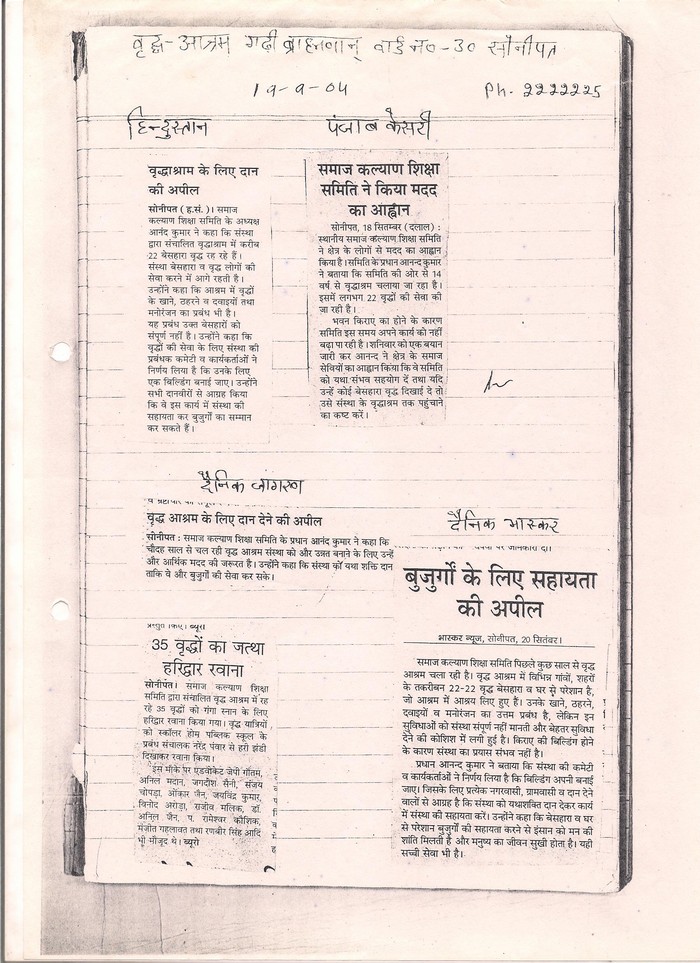 वृद्ध-आश्रम गढ़ी ब्राह्मणान् वार्ड न०-30 सोनीपत
19-9-04
Ph. 2222225
हिन्दुस्तान
वृद्धाश्राम के लिए दान
की अपील
सोनीपत (ह.सं.)। समाज
कल्याण शिक्षा समिति के अध्यक्ष
आनंद कुमार ने कहा कि संस्था
द्वारा संचालित वृद्धाश्राम में करीब
22 बेसहारा वृद्ध रह रहे हैं।
संस्था बेसहारा व वृद्ध लोगों की
सेवा करने में आगे रहती है।
उन्होंने कहा कि आश्रम में वृद्धों
के खाने, ठहरने व दवाइयों तथा
मनोरंजन का प्रबंध भी है।
यह प्रबंध उक्त बेसहारों को
संपूर्ण नहीं है। उन्होंने कहा कि
वृद्धों की सेवा के लिए संस्था की
प्रबंधक कमेटी व कार्यकर्ताओं ने
निर्णय लिया है कि उनके लिए
एक बिल्डिंग बनाई जाए। उन्होंने
सभी दानवीरों से आग्रह किया
कि वे इस कार्य में संस्था की
सहायता कर बुजुर्गों का सम्मान
कर सकते हैं।
पंजाब केसरी
समाज कल्याण शिक्षा
समिति ने किया मदद
का आह्वान
सोनीपत, 18 सितम्बर (दलाल) :
स्थानीय समाज कल्याण शिक्षा समिति
ने क्षेत्र के लोगों से मदद का आह्वान
किया है। समिति के प्रधान आनन्द कुमार
ने बताया कि समिति की ओर से 14
वर्ष से वृद्धाश्रम चलाया जा रहा है।
इसमें लगभग 22 वृद्धों की सेवा की
जा रही है।
भवन किराए का होने के कारण
समिति इस समय अपने कार्य को नहीं
बढ़ा पा रही है। शनिवार को एक बयान
जारी कर आनन्द ने क्षेत्र के समाज
सेवियों का आह्वान किया कि वे समिति
को यथा संभव सहयोग दें तथा यदि
उन्हें कोई बेसहारा वृद्ध दिखाई दे तो
उसे संस्था के वृद्धाश्रम तक पहुंचाने
का कष्ट करें।
दैनिक जागरण
वृद्ध आश्रम के लिए दान देने की अपील
सोनीपत : समाज कल्याण शिक्षा समिति के प्रधान आनंद कुमार ने कहा कि
चौदह साल से चल रही वृद्ध आश्रम संस्था को और उन्नत बनाने के लिए उन्हें
और आर्थिक मदद की जरूरत है। उन्होंने कहा कि संस्था को यथा शक्ति दान
ताकि वे और बुजुर्गो की सेवा कर सके।
35 वृद्धों का जत्था
हरिद्वार रवाना
सोनीपत। समाज कल्याण शिक्षा
समिति द्वारा संचालित वृद्ध आश्रम में रह
रहे 35 वृद्धों को गंगा स्नान के लिए
हरिद्वार रवाना किया गया। वृद्ध यात्रियों
को स्कॉलर होम पब्लिक स्कूल के
प्रबंध संचालक नरेंद्र पंवार से हरी झंडी
दिखाकर रवाना किया।
इस मौके पर एडवोकेट जेपी गौतम,
अनिल मदान, जगदीश सैनी, संजय
चोपड़ा, ओंकार जैन, जयविंद्र कुमार,
विनोद अरोड़ा, राजीव मलिक, डॉ.
अनिल जैन, प. रामेश्वर कौशिक,
मंजीत गहलावत तथा रणबीर सिंह आदि
भी मौजूद थे। ब्यूरो
दैनिक भास्कर
बुजुर्गो के लिए सहायता
की अपील
भास्कर न्यूज, सोनीपत, 20 सितंबर।
समाज कल्याण शिक्षा समिति पिछले कुछ साल से वृद्ध
आश्रम चला रही है। वृद्ध आश्रम में विभिन्न गांवों, शहरों
के तकरीबन 22-22 वृद्ध बेसहारा व घर से परेशान है,
जो आश्रम में आश्रय लिए हुए हैं। उनके खाने, ठहरने,
दवाइयों व मनोरंजन का उत्तम प्रबंध है, लेकिन इन
सुविधाओं को संस्था संपूर्ण नहीं मानती और बेहतर सुविधा
देने की कोशिश में लगी हुई है। किराए की बिल्डिंग होने
के कारण संस्था का प्रयास संभव नहीं है।
प्रधान आनन्द कुमार ने बताया कि संस्था की कमेटी
व कार्यकर्ताओं ने निर्णय लिया है कि बिल्डिंग अपनी बनाई
जाए। जिसके लिए प्रत्येक नगरवासी, ग्रामवासी व दान देने
वालों से आग्रह है कि संस्था को यथाशक्ति दान देकर कार्य
में संस्था की सहायता करें। उन्होंने कहा कि बेसहारा व घर
से परेशान बुजुर्गो की सहायता करने से इंसान को मन की
शांति मिलती है और मनुष्य का जीवन सुखी होता है। यही
सच्ची सेवा भी है।